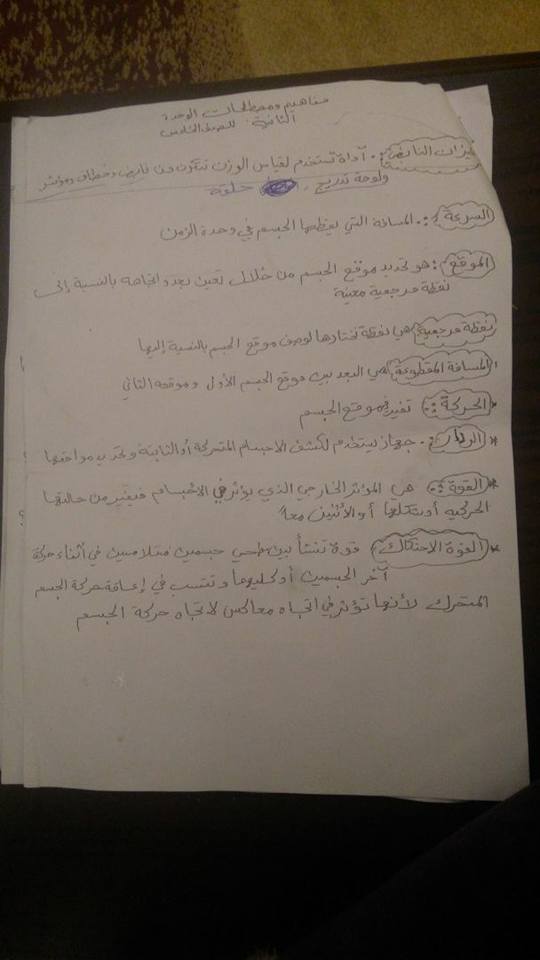 مفاهيم ومصطلحات الوحدة
الثانية: للصف الخامس
ميزان النابض: أداة تستخدم لقياس الوزن تتكون من نابض وخطاف ومؤشر
ولوحة تدريج، حلقة
السرعة: المسافة التي يقطعها الجسم في وحدة الزمن
الموقع: هو تحديد موقع الجسم من خلال تعين بعده واتجاهه بالنسبة إلى
نقطة مرجعية معينة
نقطة مرجعية هي نقطة نختارها لوصف موقع الجسم بالنسبة إليها
المسافة المقطوعة هي البعد بين موقع الجسم الأول وموقعه الثاني
* الحركة: تغير في موقع الجسم
* الردار: جهاز يستخدم لكشف الاجسام المتحركة أو الثابتة وتحديد مواقعها
* القوة: هي المؤثر الخارجي الذي يؤثر في الأجسام فيغير من حالتها
الحركية أو شكلها أو الأثنين معاً
* القوة الاحتكاك قوة تنشأ بين سطحي جسمين متلامسين في أثناء حركة
آخر الجسمين أو كليهما وتتسبب في إعاقة حركة الجسم
المتحرك لأنها تؤثر في اتجاه معاكس لاتجاه حركة الجسم